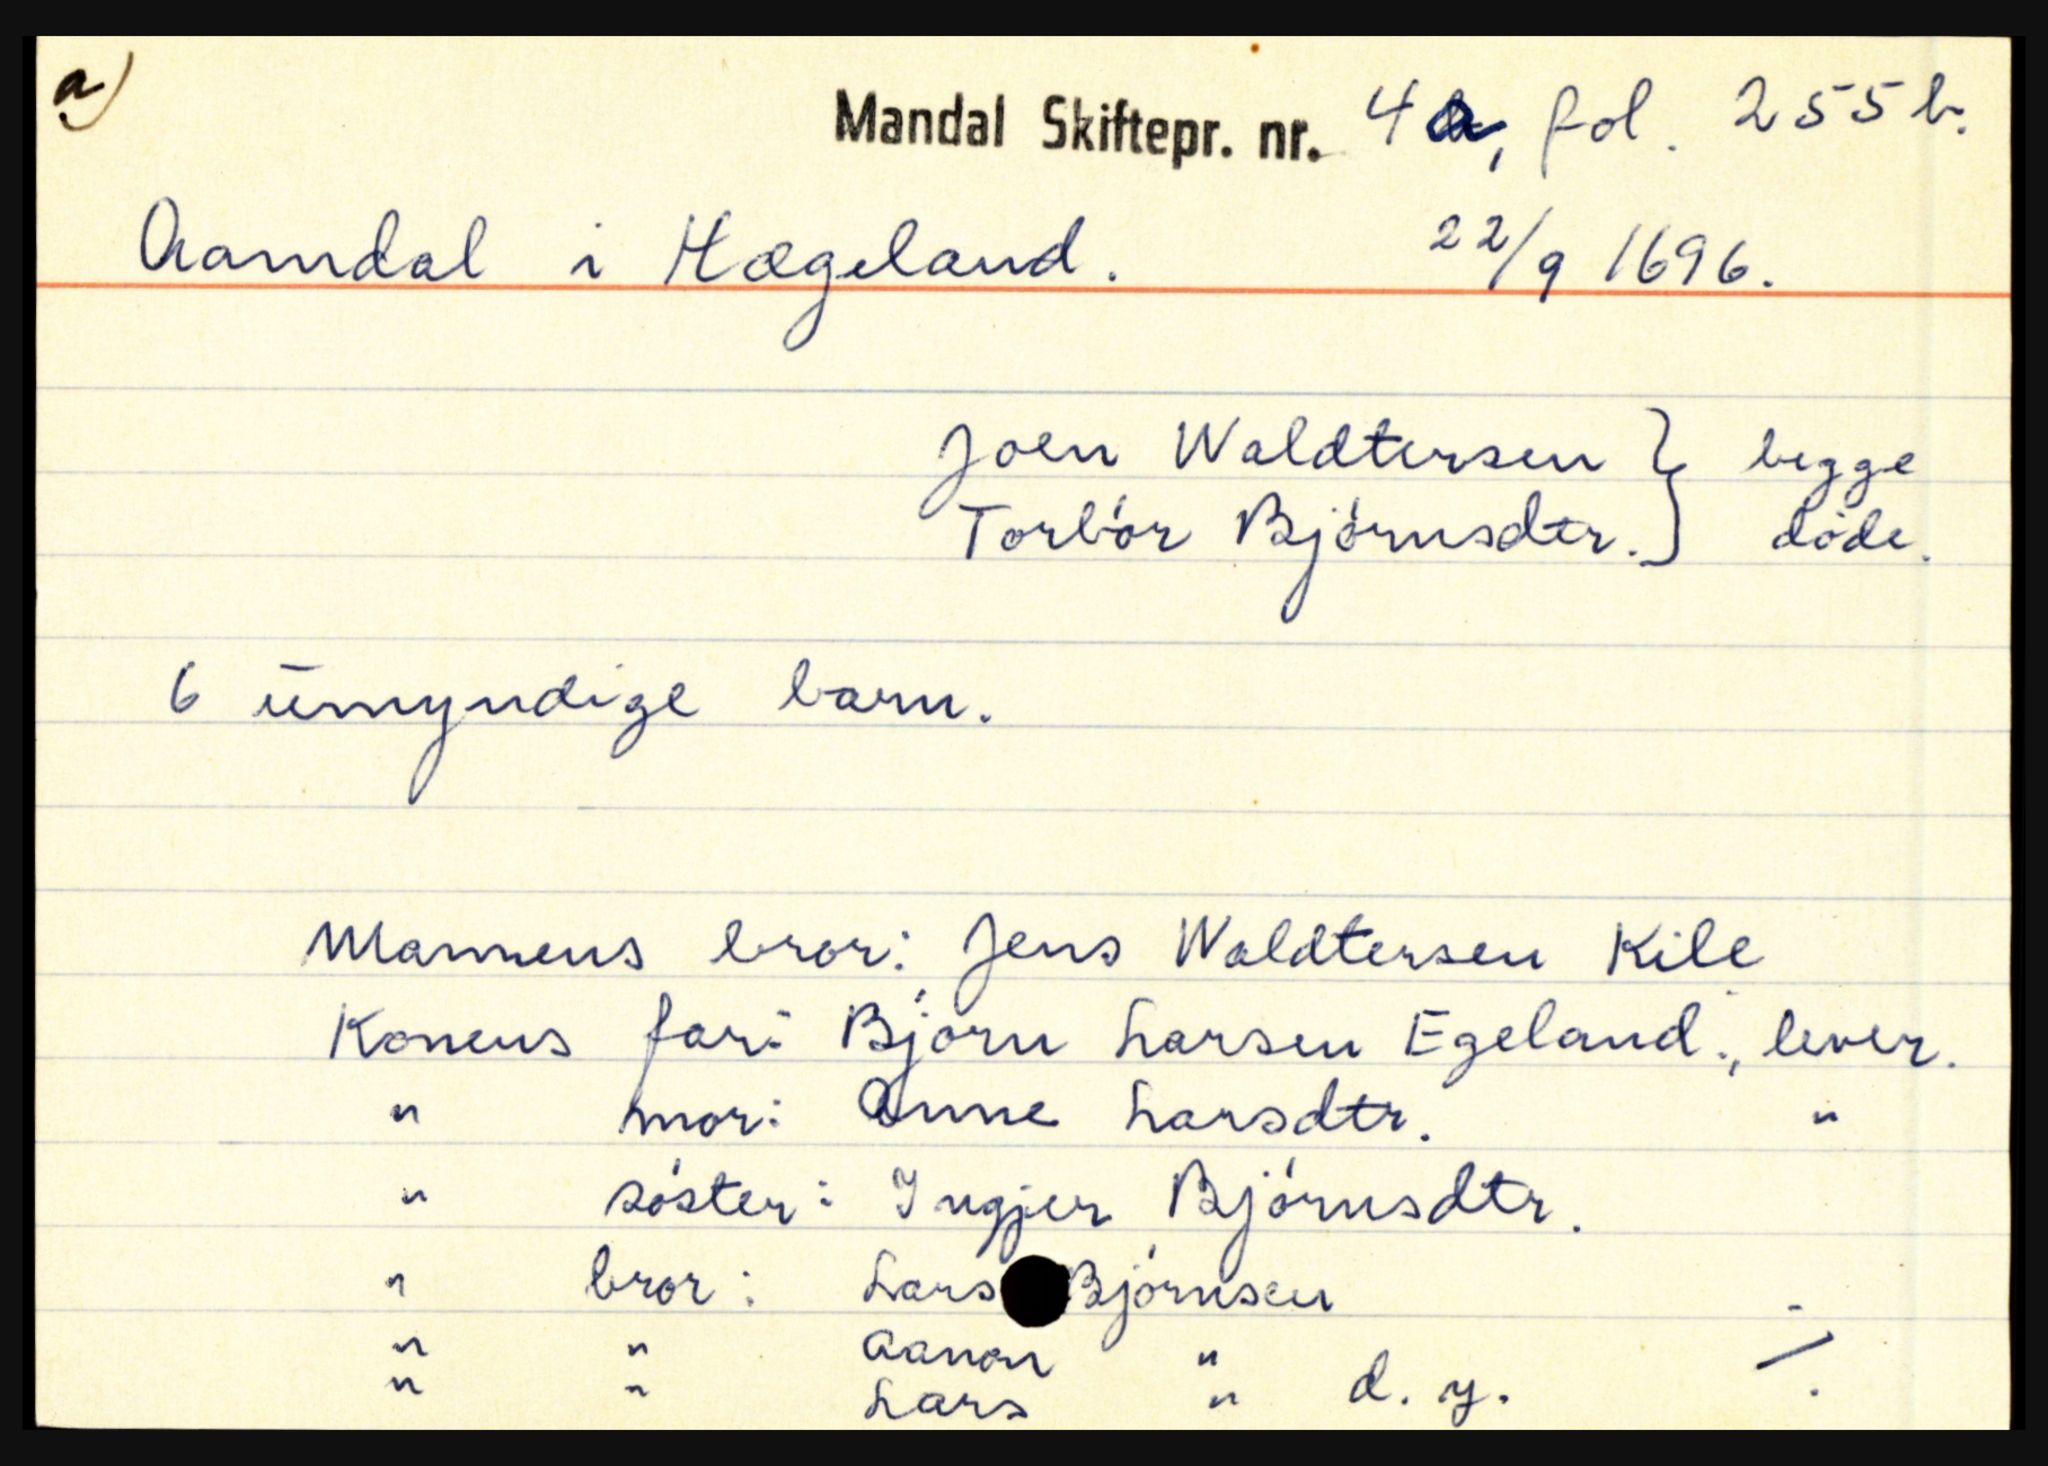 a)
Mandal Skiftepr. nr. 4a, fol. 255 b.
Aamdal i Hægeland. 22/9 1696.
Joen Waldtersen } begge
Torbór Bjórnsdtr. } dóde.
6 umyndige barn.
Mannens bror: Jens Waldtersen Kile
Konens far: Bjórn Larsen Egeland., lever.
" mor: Anne Larsdtr. "
" sóster: Ingjer Bjórnsdtr.
" bror: Lars Bjórnsen
" " Aanon "
" " Lars " d. y. ./.